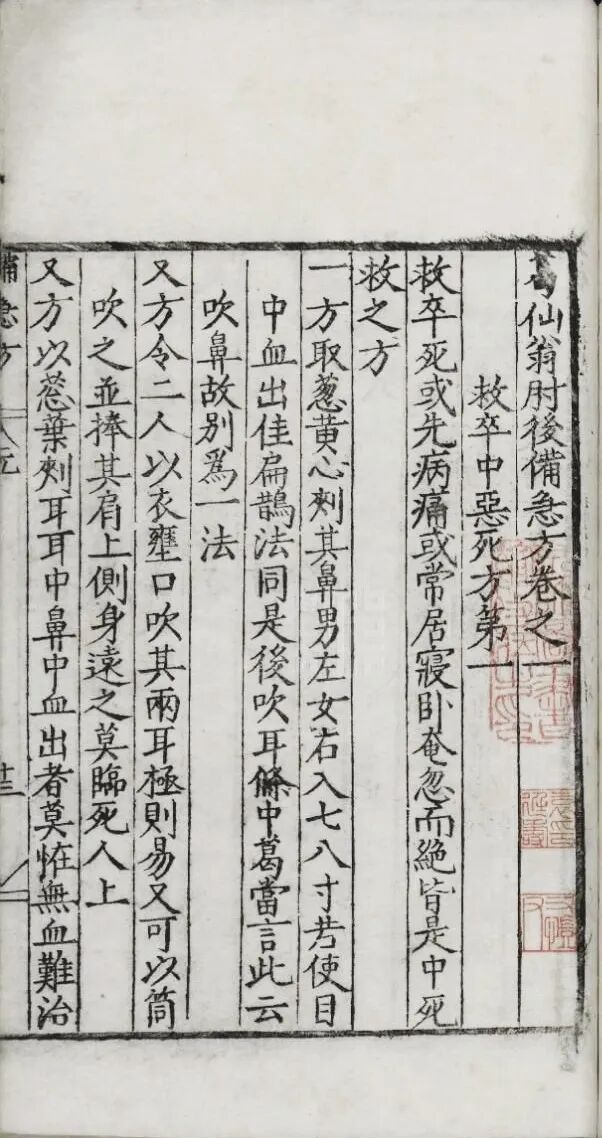 葛仙翁肘後備急方卷之一
救卒中惡死方第一
救卒死或先病痛或常居寢卧奄忽而絶皆是中死
救之方
一方取葱黄心刾其鼻男左女右入七八寸若使目
中血出佳扁鵲法同是後吹耳條中葛當言此云
吹鼻故别爲一法
又方令二人以衣壅口吹其兩耳極則易又可以筒
吹之並捧其肩上側身遠之莫臨死人上
又方以葱葉刾耳耳中鼻中血出者莫恠無血難治
備急方 八卷